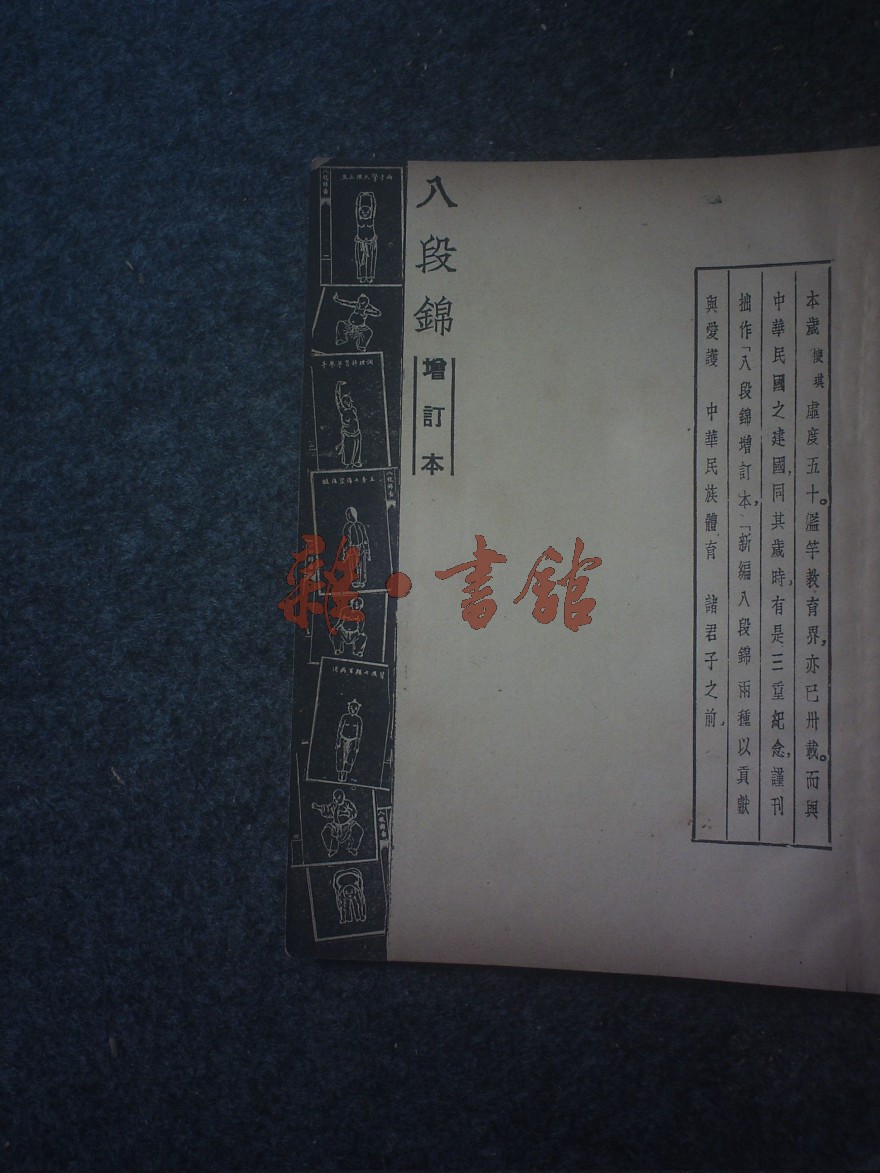 本歲楩琪虛度五十。濫竽教育界，亦已卅載。而與
中華民國之建國，同其歲時，有是三重紀念，謹刊
拙作「八段錦增訂本」，「新編八段錦」兩種以貢獻
與愛護　中華民族體育　諸君子之前，
八段錦
增訂本
雜·書館